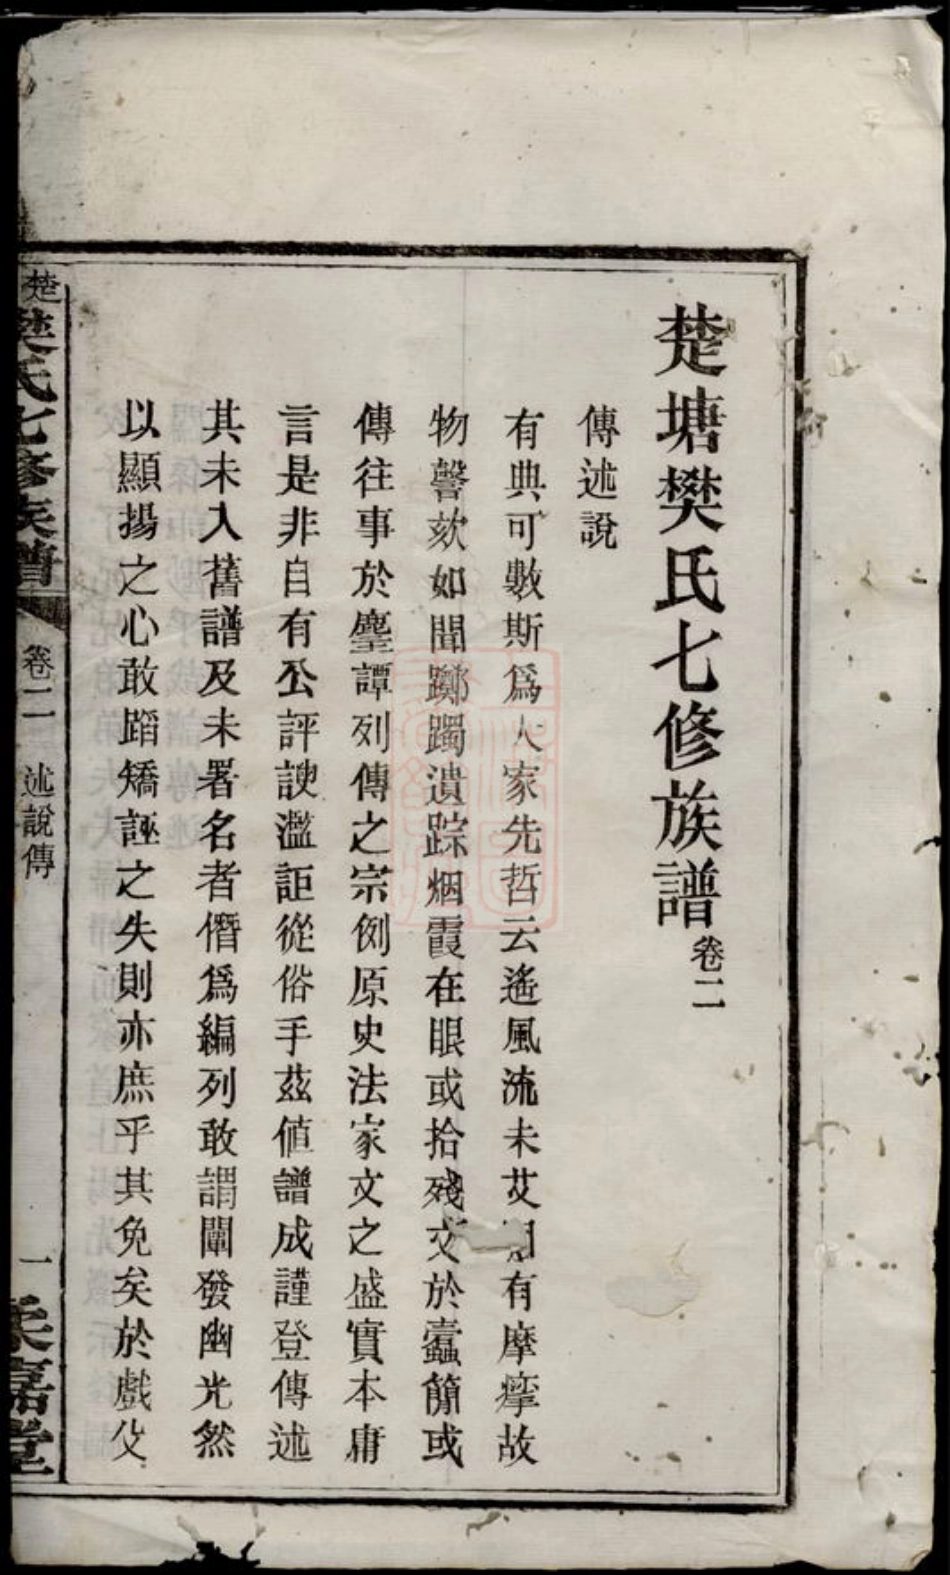 楚塘樊氏七修族譜卷二
傳述說
有典可數斯爲大家先哲云遙風流未艾有摩挲故
物謦欬如聞躑躅遺踪烟霞在眼或拾殘文於蠹簡或
傳往事於麈譚列傳之宗例原史法家文之盛實本庸
言是非自有公評諛濫詎從俗手茲値譜成謹登傳述
其未入舊譜及未署名者僭爲編列敢謂闡發幽光然
以顯揚之心敢蹈矯誣之失則亦庶乎其免矣於戲父
楚樊氏七修族譜 卷二 述說傳 一 嘉堂